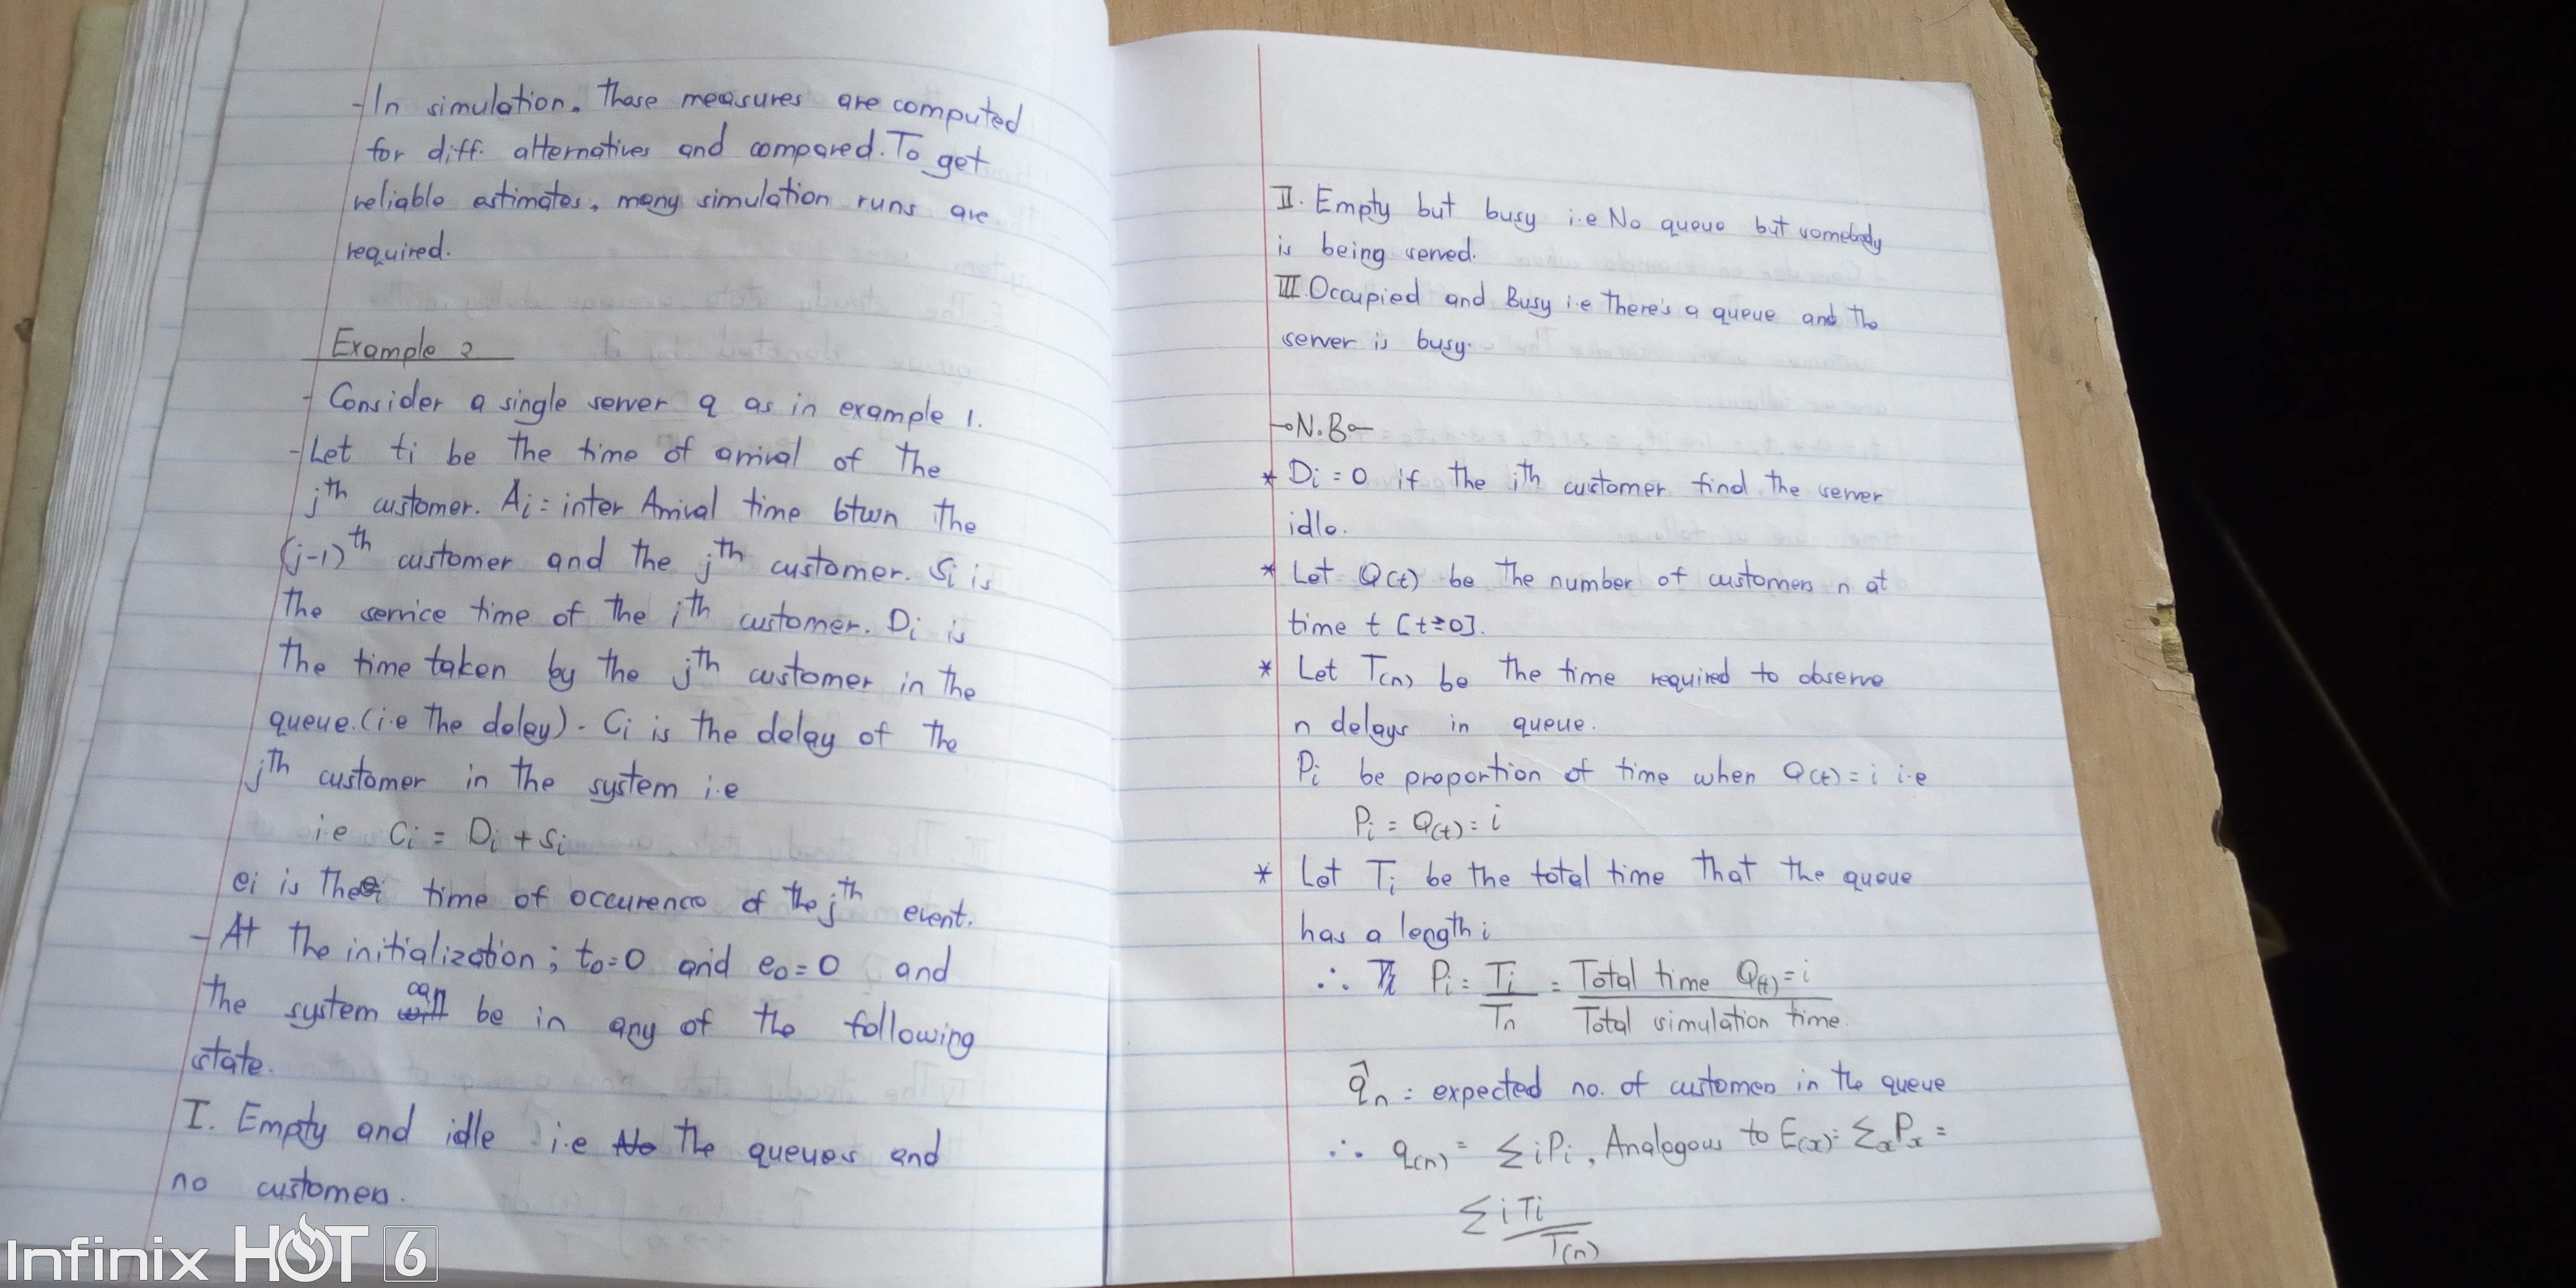 -In simulation. These measures are computed
for diff. alternatives and compared. To get
reliable estimates, many simulation runs are
required.
Example 2
- Consider a single server q as in example 1.
- Let ti be the time of arrival of the
jth customer. Ai = inter Arrival time btwn the
(j-1)th customer and the jth customer. Si is
the service time of the ith customer. Di is
the time taken by the jth customer in the
queue. (i.e the delay) - Ci is the delay of the
jth customer in the system i.e
i.e Ci = Di + Si
ei is the time of occurence of the jth event.
- At the initialization; to=0 and eo=0 and
the system can be in any of the following
state.
I. Empty and idle i.e the queues and
no customers.
II. Empty but busy i.e No queue but somebody
is being served.
III. Occupied and Busy i.e there's a queue and the
server is busy.
N.B
* Di = 0 if the ith customer find the server
idle.
* Let Q(t) be the number of customers n at
time t [t≥0].
* Let T(n) be the time required to observe
n delays in queue.
Pi be proportion of time when Q(t) = i i.e
Pi = Q(t) = i
* Let Ti be the total time that the queue
has a length i
∴ Pi = Ti/Tn = Total time Q(t) = i / Total simulation time.
q̂n = expected no. of customers in the queue
∴ q(n) = ΣiPi, Analogous to E(x) = ΣxPx =
ΣiTi/T(n)
Infinix HOT 6